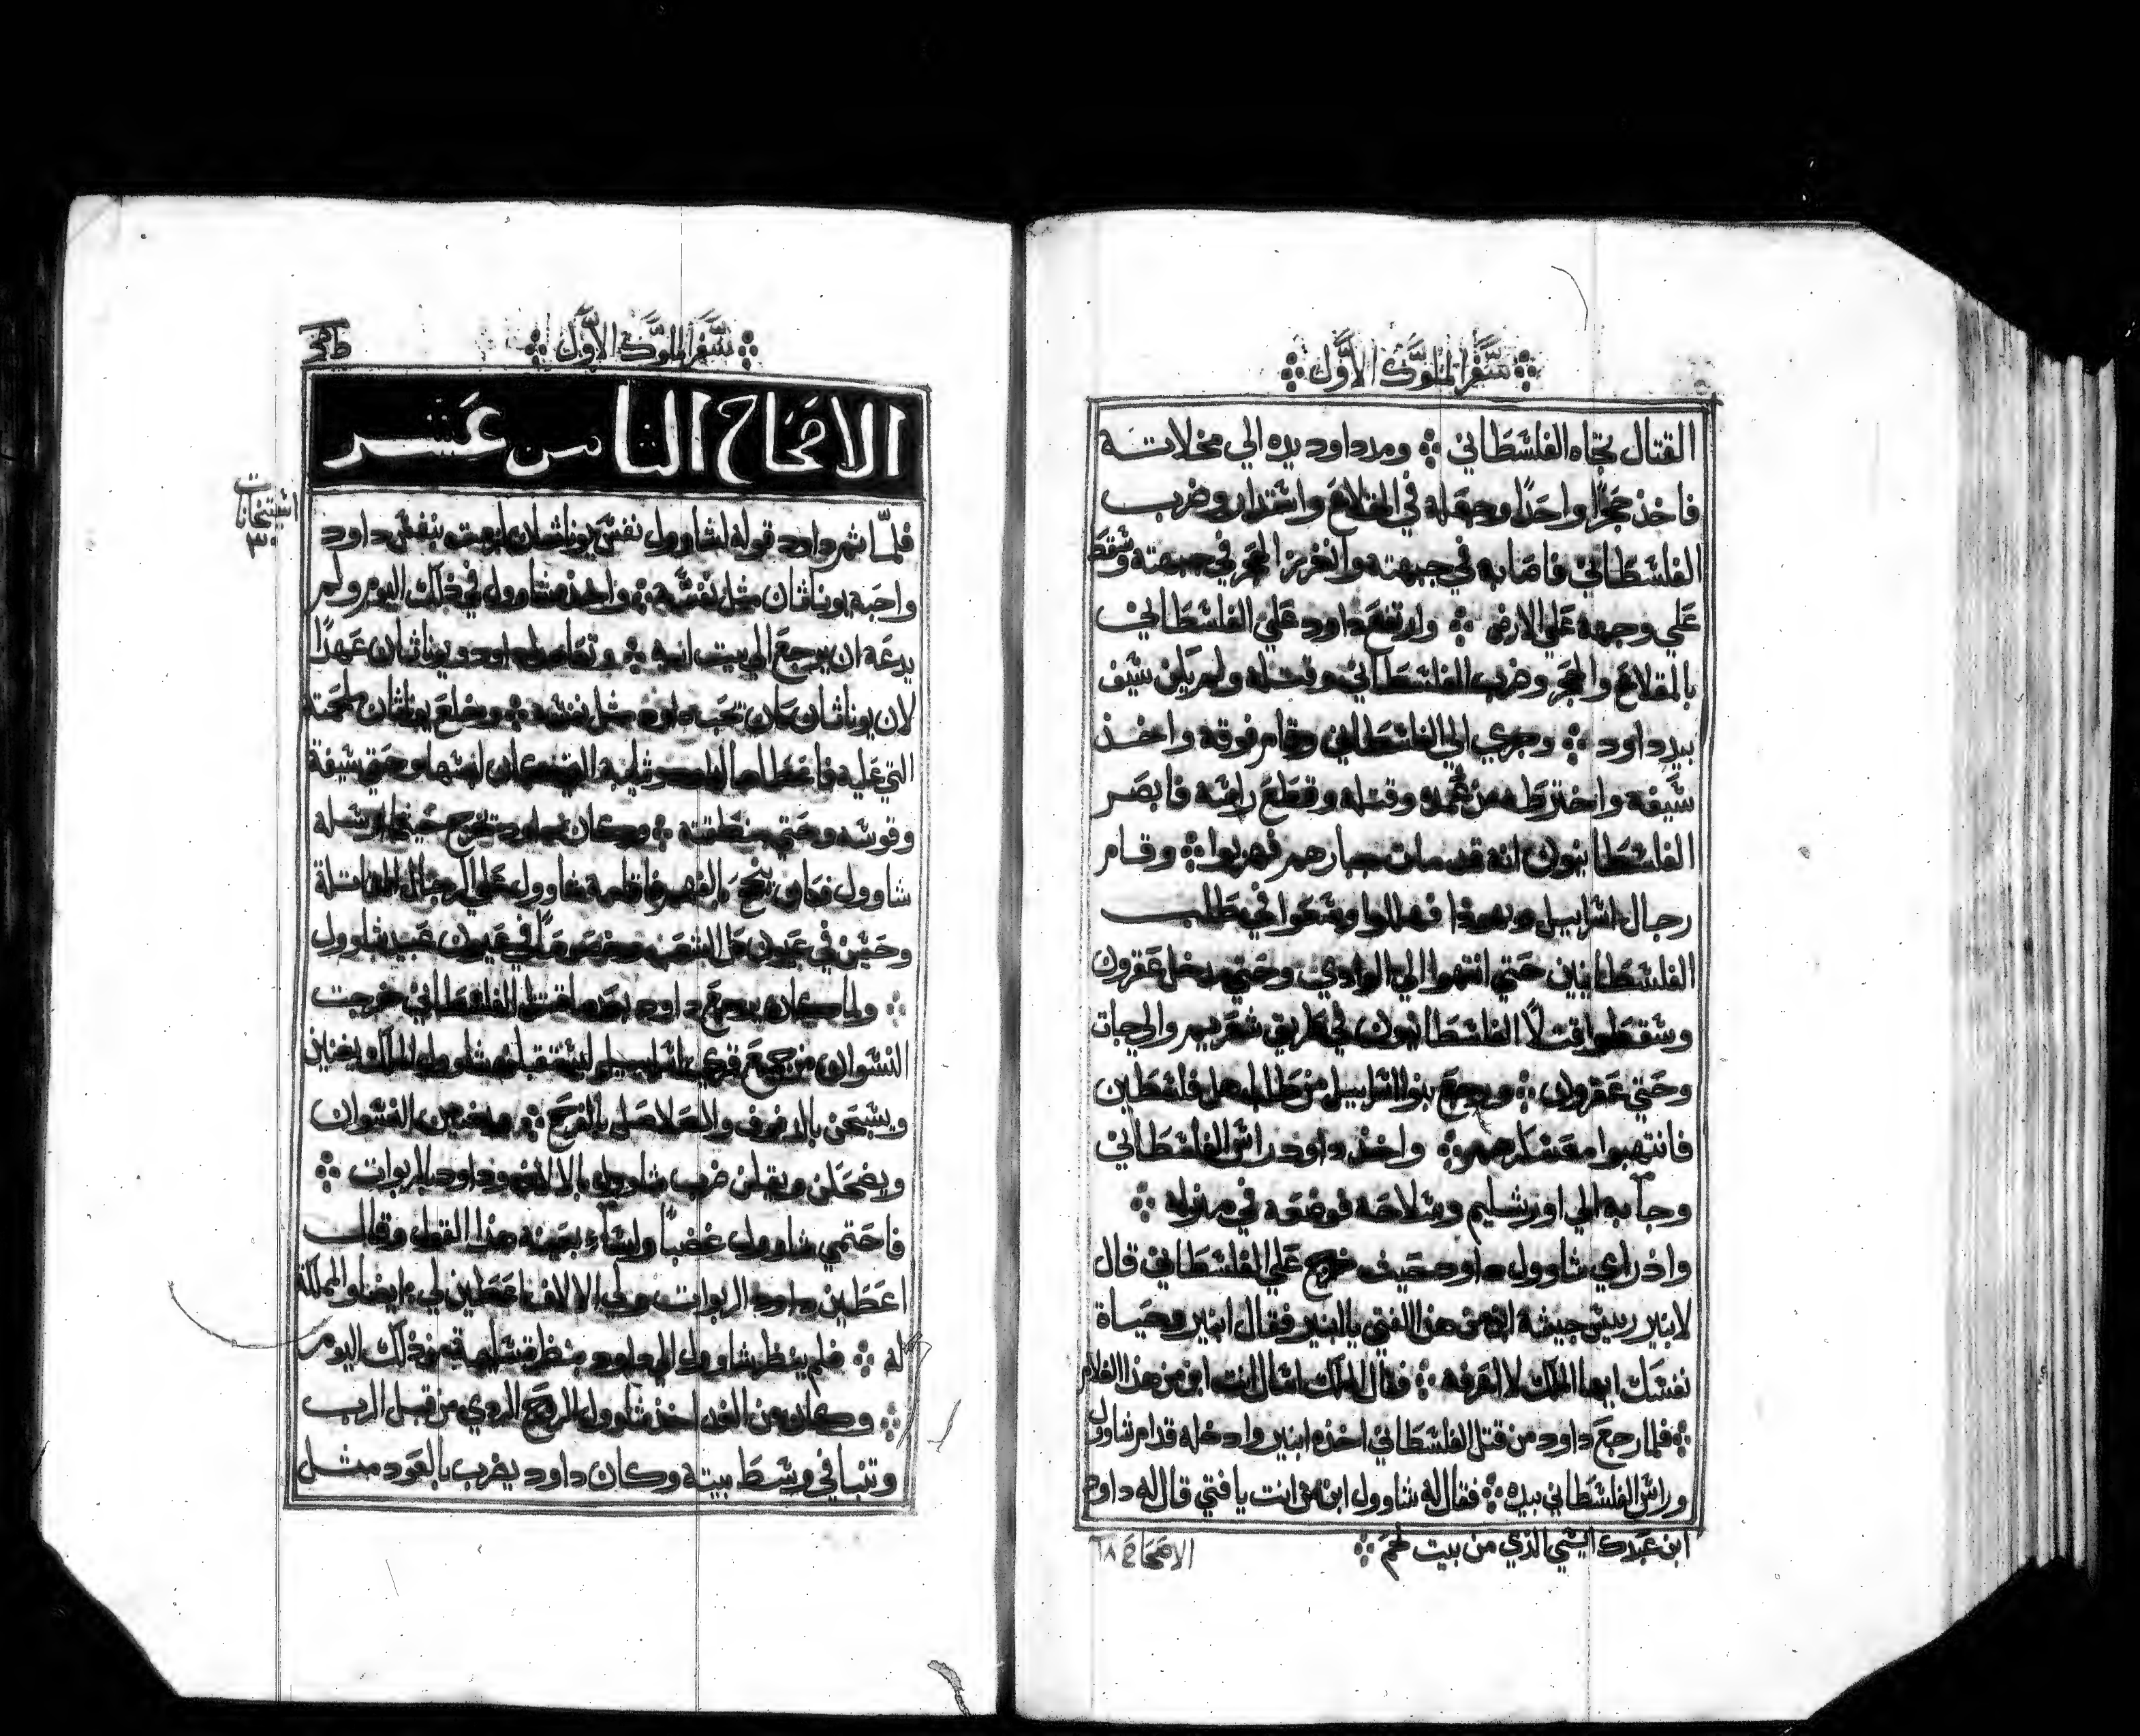 سفر الملوك الأول
القتال تجاه الفلسطاني ومد داود يده الي مخلاته
فاخذ حجرًا واحدًا وجعله في المقلاع واستدار وضرب
الفلسطاني فاصابه في جبهته وانغرز الحجر في جبهته وسقط
علي وجهه علي الارض وارتفع داود علي الفلسطاني
بالمقلاع والحجر وضرب الفلسطاني وقتله ولم يكن سيف
بيد داود وجري الي الفلسطاني وقام فوقه واخذ
سيفه واخترطه من غمده وقتله وقطع راسه فابصر
الفلسطانيون انه قد مات جبارهم فهربوا وقام
رجال اسراييل ويهوذا فهللوا وسعوا في طلب
الفلسطانيين حتي انتهوا الي الوادي وحتي مدخل عقرون
وسقطوا قتلًا الفلسطانيون في طريق شعريم والي جات
وحتي عقرون ورجع بنوا اسراييل من فلسطين
فانتهبوا معسكرهم واخذ داود راس الفلسطاني
وجآ به الي اورشليم وسلاحه فوضعه في منزله
واذ راي شاوول داود حيث خرج علي الفلسطاني قال
لابنير رييس جيشه ابن من هذا الفتي يا ابنير فقال ابنير وحياة
نفسك ايها الملك لا اعرفه فقال الملك اسال انت ابن من هذا الغلام
فلما رجع داود من قتل الفلسطاني اخذه ابنير وادخله قدام شاوول
وراس الفلسطاني بيده فقال له شاوول ابن من انت يا فتي قال له داود
ابن عبدك ايسي الذي من بيت لحم
الاصحاح ١٨
سفر الملوك الأول
الاصحاح الثامن عشر
٣٠
فلمّا تم داود قوله لشاوول نفس يوناثان بنفس داود
واحبه يوناثان مثل نفسه واخذه شاوول في ذلك اليوم ولم
يدعه ان يرجع الي بيت ابيه داود ويوناثان عهدًا
لان يوناثان كان تحبه مثل نفسه وخلع يوناثان
التي عليه لداود ثيابه وحتي سيفه
وقوسه وحتي منطقته وكان داود تخرج حيثما ارسله
شاوول فكان ينجح بالفهم فاقامه شاوول علي الرجال المقاتلة
وحسن في عيون كل الشعب في عيون عبيد شاوول
ولما كان يرجع داود بعدما قتل الفلسطاني خرجت
النسوان من جميع قري اسراييل شاوول الملك يغنين
ويسبحن بالدفوف والصلاصل بالفرح النسوان
ويضحكن ويقلن ضرب شاوول بالالاف وداود بالربوات
فاحتمي شاوول غضبًا وسآء بعينه هذا القول وقال
اعطين داود الربوات ولي الالاف اعطين ايضا والمملكة
له فلم ينظر شاوول الي داود بنظر من ذلك اليوم
وكان من الغد اخذ شاوول الروح الردي من قبل الرب
وتنبا في وسط بيته وكان داود يضرب بالعود مثل